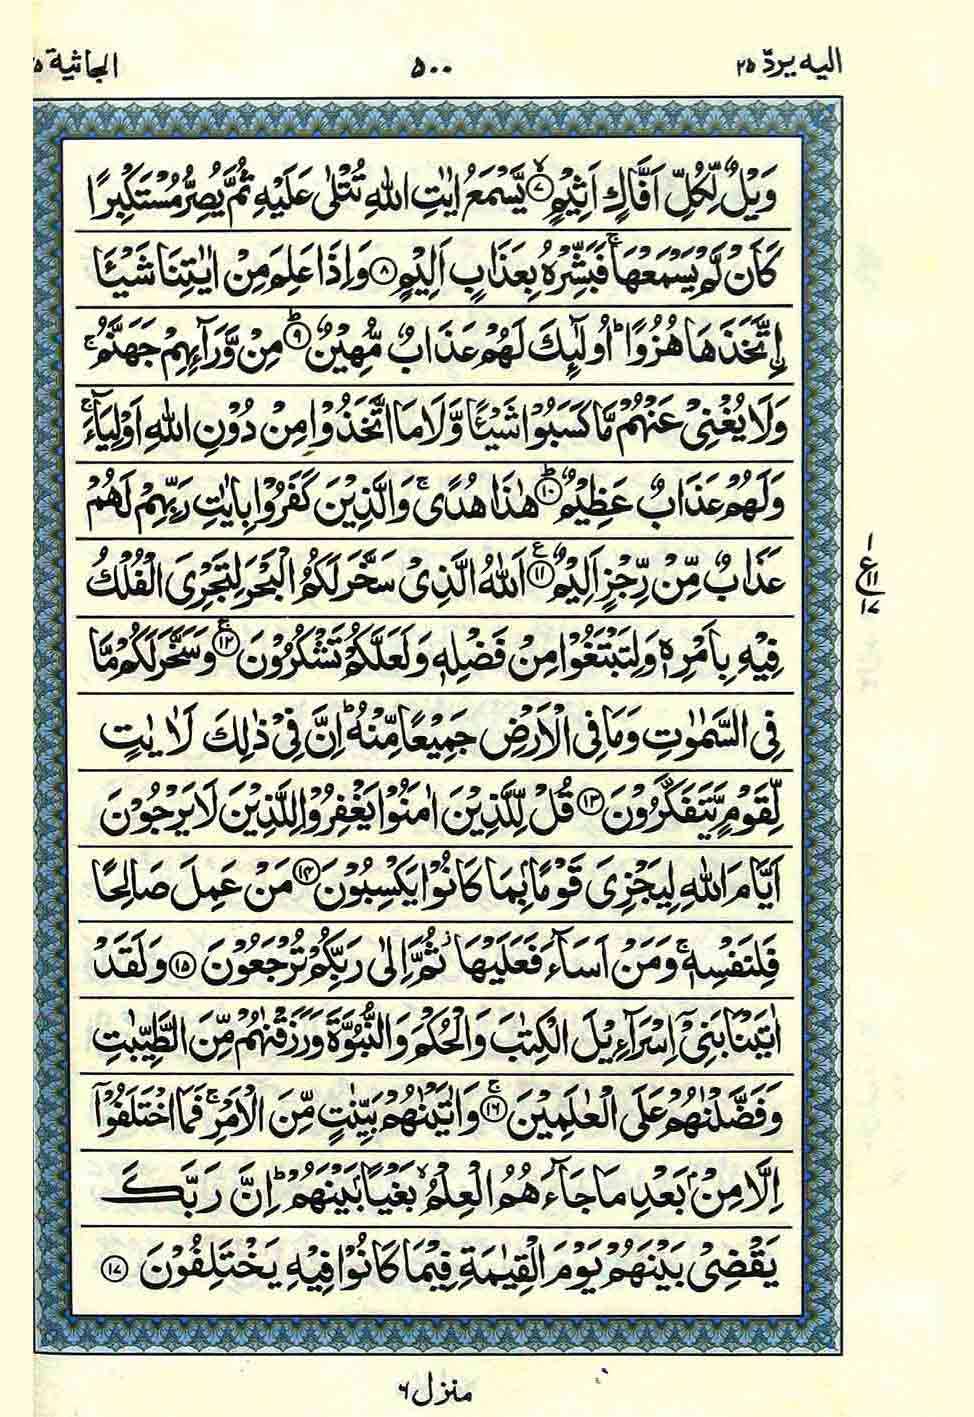 اليه يردّ ٢٥
٥٠٠
الجاثية ٤٥
وَيْلٌ لِّكُلِّ اَفَّاكٍ اَثِيْمٍ ۙ‏﴿۷﴾ يَّسْمَعُ اٰيٰتِ اللّٰهِ تُتْلٰى عَلَيْهِ ثُمَّ يُصِرُّ مُسْتَكْبِرًا
كَاَنْ لَّمْ يَسْمَعْهَا ۚ فَبَشِّرْهُ بِعَذَابٍ اَلِيْمٍ ﴿۸﴾ وَاِذَا عَلِمَ مِنْ اٰيٰتِنَا شَيْـًٔا
اۨتَّخَذَهَا هُزُوًا ؕ اُولٰٓئِكَ لَهُمْ عَذَابٌ مُّهِيْنٌ ؕ﴿۹﴾ مِنْ وَّرَآئِهِمْ جَهَنَّمُ ۚ
وَلَا يُغْنِىْ عَنْهُمْ مَّا كَسَبُوْا شَيْـًٔا وَّلَا مَا اتَّخَذُوْا مِنْ دُوْنِ اللّٰهِ اَوْلِيَآءَ ۚ
وَلَهُمْ عَذَابٌ عَظِيْمٌ ؕ﴿۱۰﴾ هٰذَا هُدًى ۚ وَالَّذِيْنَ كَفَرُوْا بِاٰيٰتِ رَبِّهِمْ لَهُمْ
عَذَابٌ مِّنْ رِّجْزٍ اَلِيْمٌ ﴿۱۱﴾ ع اَللّٰهُ الَّذِىْ سَخَّرَ لَكُمُ الْبَحْرَ لِتَجْرِىَ الْفُلْكُ
١ ع ١١ ١٧
فِيْهِ بِاَمْرِهٖ وَلِتَبْتَغُوْا مِنْ فَضْلِهٖ وَلَعَلَّكُمْ تَشْكُرُوْنَ ۚ﴿۱۲﴾ وَسَخَّرَ لَكُمْ مَّا
فِى السَّمٰوٰتِ وَمَا فِى الْاَرْضِ جَمِيْعًا مِّنْهُ ؕ اِنَّ فِىْ ذٰلِكَ لَاٰيٰتٍ
لِّقَوْمٍ يَّتَفَكَّرُوْنَ ﴿۱۳﴾ قُلْ لِّلَّذِيْنَ اٰمَنُوْا يَغْفِرُوْا لِلَّذِيْنَ لَا يَرْجُوْنَ
اَيَّامَ اللّٰهِ لِيَجْزِىَ قَوْمًۢا بِمَا كَانُوْا يَكْسِبُوْنَ ﴿۱۴﴾ مَنْ عَمِلَ صَالِحًا
فَلِنَفْسِهٖ ۚ وَمَنْ اَسَآءَ فَعَلَيْهَا ؗ ثُمَّ اِلٰى رَبِّكُمْ تُرْجَعُوْنَ ﴿۱۵﴾ وَلَقَدْ
اٰتَيْنَا بَنِىْۤ اِسْرَآءِيْلَ الْكِتٰبَ وَالْحُكْمَ وَالنُّبُوَّةَ وَرَزَقْنٰهُمْ مِّنَ الطَّيِّبٰتِ
وَفَضَّلْنٰهُمْ عَلَى الْعٰلَمِيْنَ ۚ﴿۱۶﴾ وَاٰتَيْنٰهُمْ بَيِّنٰتٍ مِّنَ الْاَمْرِ ۚ فَمَا اخْتَلَفُوْۤا
اِلَّا مِنْۢ بَعْدِ مَا جَآءَهُمُ الْعِلْمُ ۙ بَغْيًۢا بَيْنَهُمْ ؕ اِنَّ رَبَّكَ
يَقْضِىْ بَيْنَهُمْ يَوْمَ الْقِيٰمَةِ فِيْمَا كَانُوْا فِيْهِ يَخْتَلِفُوْنَ ﴿۱۷﴾
منزل ٦